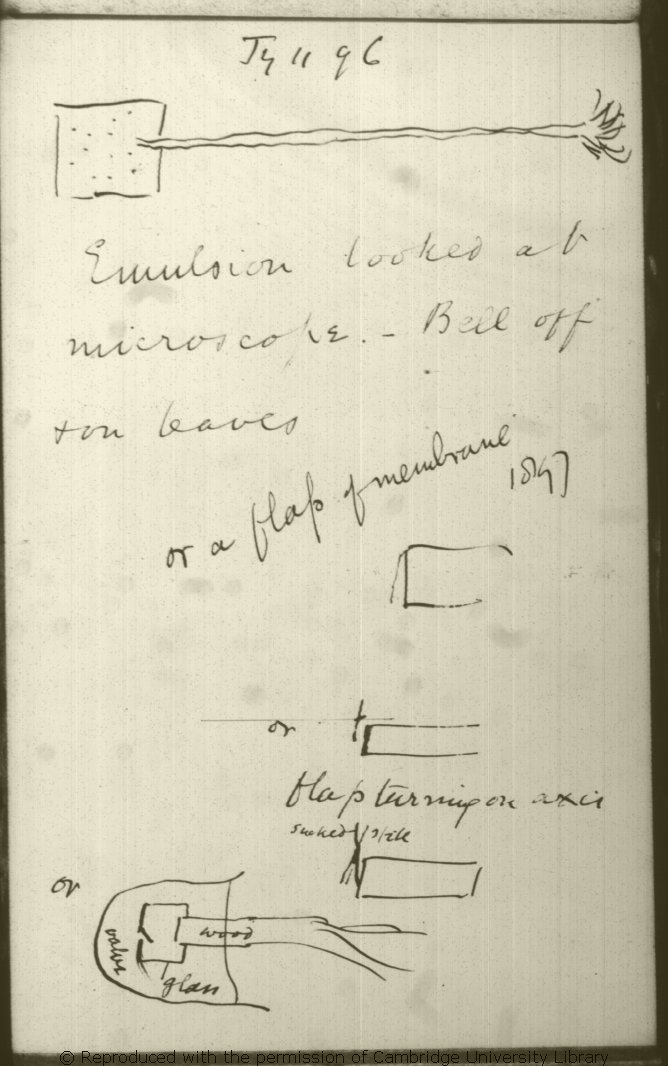 Jy 11 96
Emulsion looked at
microscope. - Bell off
ton leaves
or a flap of membrane
1897
or
flap turning on axis
smoked silk
or
valve
wood
glass
© Reproduced with the permission of Cambridge University Library